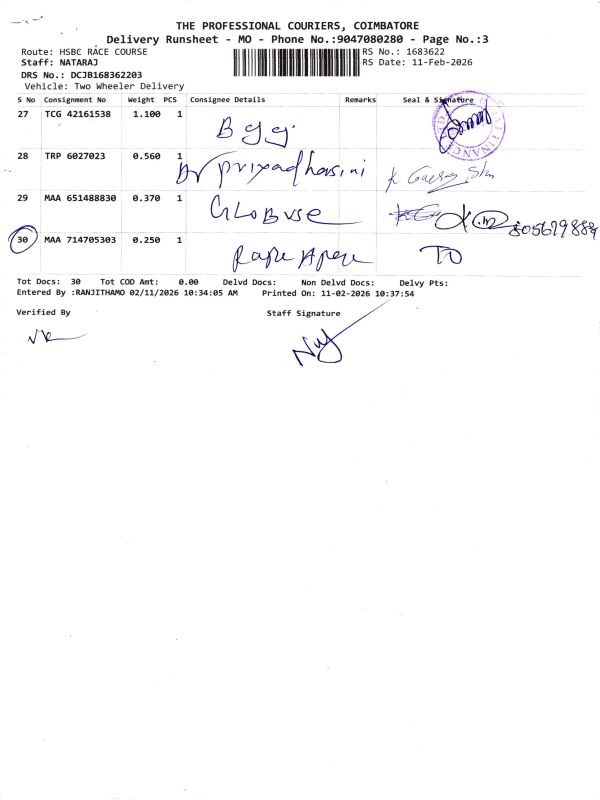 THE PROFESSIONAL COURIERS, COIMBATORE
Delivery Runsheet - MO - Phone No.:9047080280 - Page No.:3
Route: HSBC RACE COURSE RS No.: 1683622
Staff: NATARAJ RS Date: 11-Feb-2026
DRS No.: DCJB168362203
Vehicle: Two Wheeler Delivery
S No Consignment No Weight PCS Consignee Details Remarks Seal & Signature
27 TCG 42161538 1.100 1
28 TRP 6027023 0.560 1 Dr Priyadharsini
29 MAA 651488830 0.370 1 GLOBUSE
30 MAA 714705303 0.250 1
Tot Docs: 30 Tot COD Amt: 0.00 Delvd Docs: Non Delvd Docs: Delvy Pts:
Entered By :RANJITHAMO 02/11/2026 10:34:05 AM Printed On: 11-02-2026 10:37:54
Verified By Staff Signature